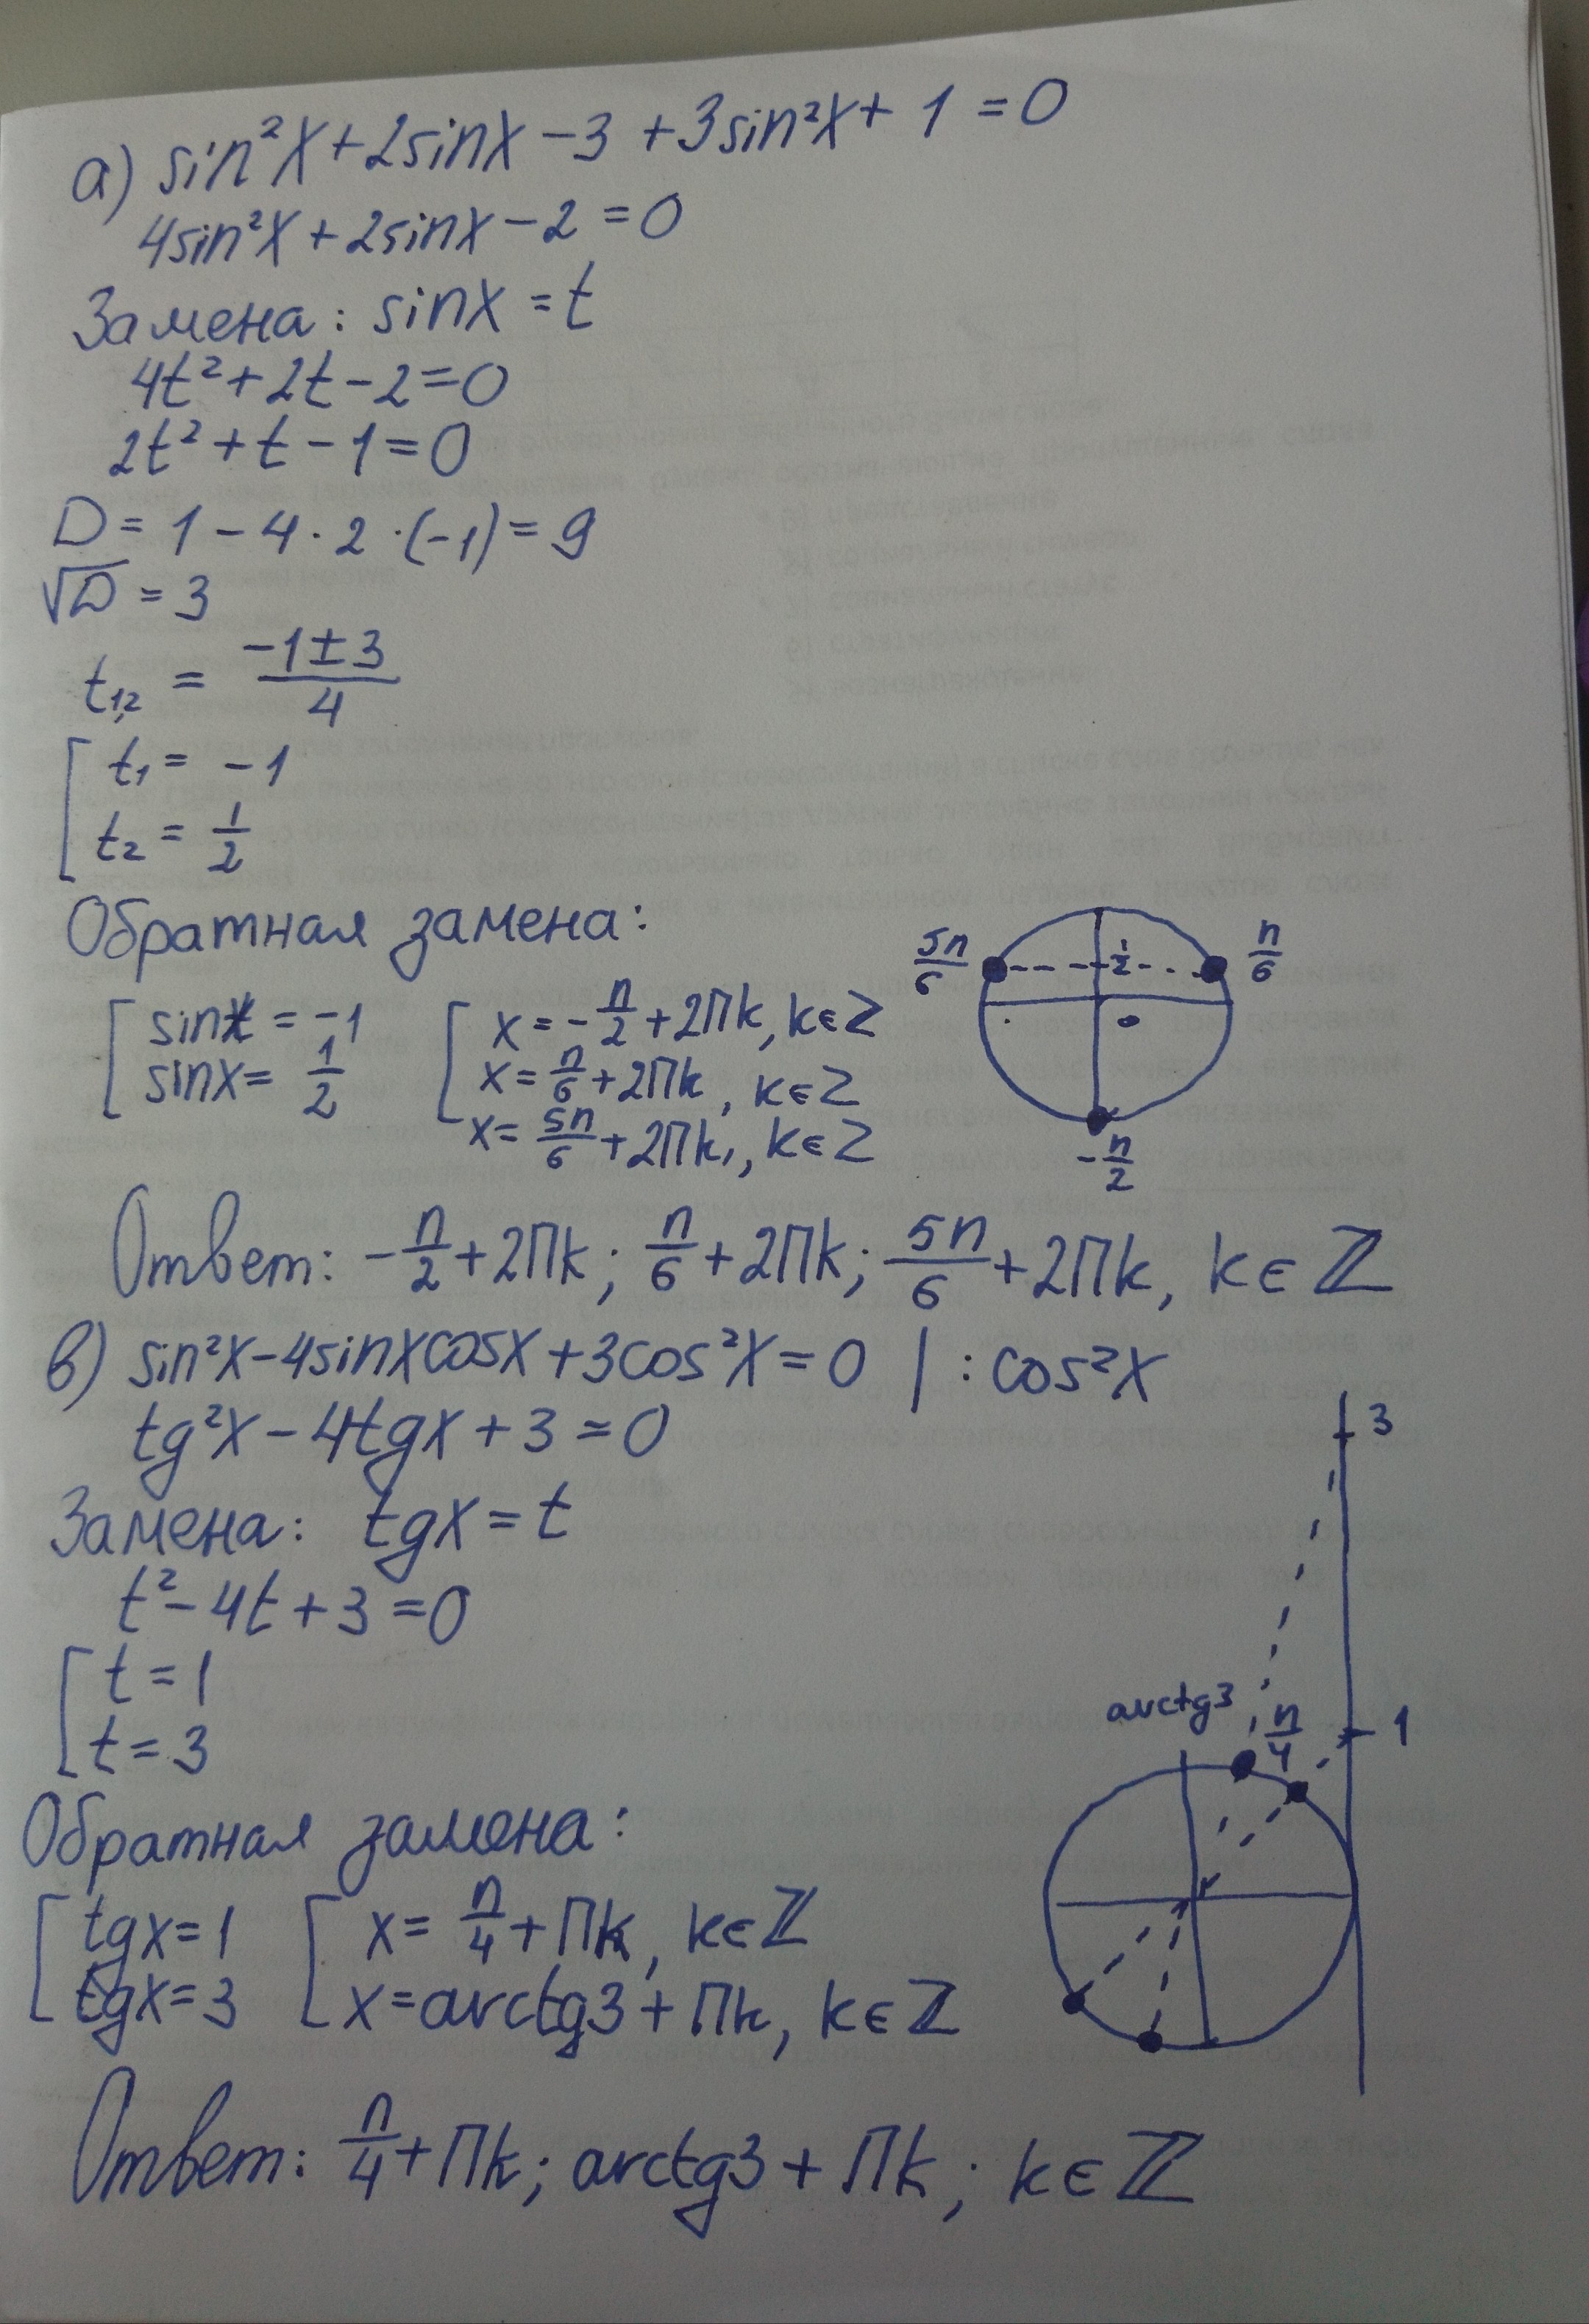 а) sin²x+2sinx-3+3sin²x+1=0
4sin²x+2sinx-2=0
Замена: sinx=t
4t²+2t-2=0
2t²+t-1=0
D=1-4·2·(-1)=9
√D=3
t₁,₂ = (-1±3)/4
[ t₁=-1
t₂=1/2
Обратная замена:
5π/6 1/2 π/6
0
-π/2
[ sinx=-1 [ x=-π/2+2πk, k∈Z
sinx=1/2 x=π/6+2πk, k∈Z
x=5π/6+2πk, k∈Z
Ответ: -π/2+2πk; π/6+2πk; 5π/6+2πk, k∈Z
в) sin²x-4sinxcosx+3cos²x=0 | :cos²x
tg²x-4tgx+3=0
Замена: tgx=t
t²-4t+3=0
[ t=1
t=3
3
arctg3 π/4 1
Обратная замена:
[ tgx=1 [ x=π/4+πk, k∈Z
tgx=3 x=arctg3+πk, k∈Z
Ответ: π/4+πk; arctg3+πk; k∈Z